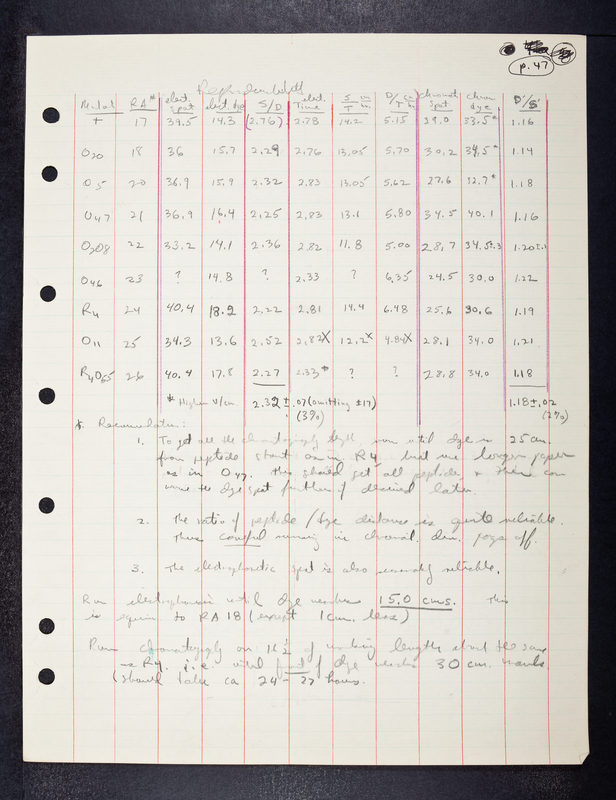 p. 47
Reproducibility
Mutat RA# elect. spot elect. dye S/D elect. Time S/T cm/hr. D/T cm/hr chromat spot chrom dye D'/S'
+ 17 39.5 14.3 (2.76) 2.78 14.2 5.15 29.0 33.5* 1.16
O20 18 36 15.7 2.29 2.76 13.05 5.70 30.2 34.5* 1.14
O5 20 36.9 15.9 2.32 2.83 13.05 5.62 27.6 32.7* 1.18
O47 21 36.9 16.4 2.25 2.83 13.1 5.80 34.5 40.1 1.16
22 33.2 14.1 2.36 2.82 11.8 5.00 28.7 34.5±.3 1.20±.1
O46 23 ? 14.8 ? 2.33 ? 6.35 24.5 30.0 1.22
R4 24 40.4 18.2 2.22 2.81 14.4 6.48 25.6 30.6 1.19
O11 25 34.3 13.6 2.52 2.82X 12.2X 4.84X 28.1 34.0 1.21
26 40.4 17.8 2.27 2.33* ? ? 28.8 34.0 1.18
* Higher V/cm. 2.32 ± .07 (omitting #17) 1.18±.02
(3%) (2%)
1. To get all the chromatography length, run until dye is 25 cm.
from peptide start as in R4 but use longer paper
as in O47. This should get all peptide + then can
the dye spot further if desired later.
2. The ratio of peptide/dye distance is quite reliable.
Thus careful running in chromat. dim. pays off.
3. The electrophoretic spot is also reasonably reliable.
Run electrophoresis until dye reaches 15.0 cms. This
is equiv. to RA 18 (except 1 cm. less)
Run chromatography on of working length about the same
as R4. i.e. until front of dye reaches 30 cm. mark.
(should take ca 24-27 hours.